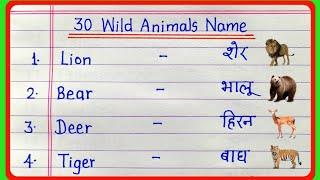 30 Wild Animals Name
1. Lion - शेर
2. Bear - भालू
3. Deer - हिरन
4. Tiger - बाघ